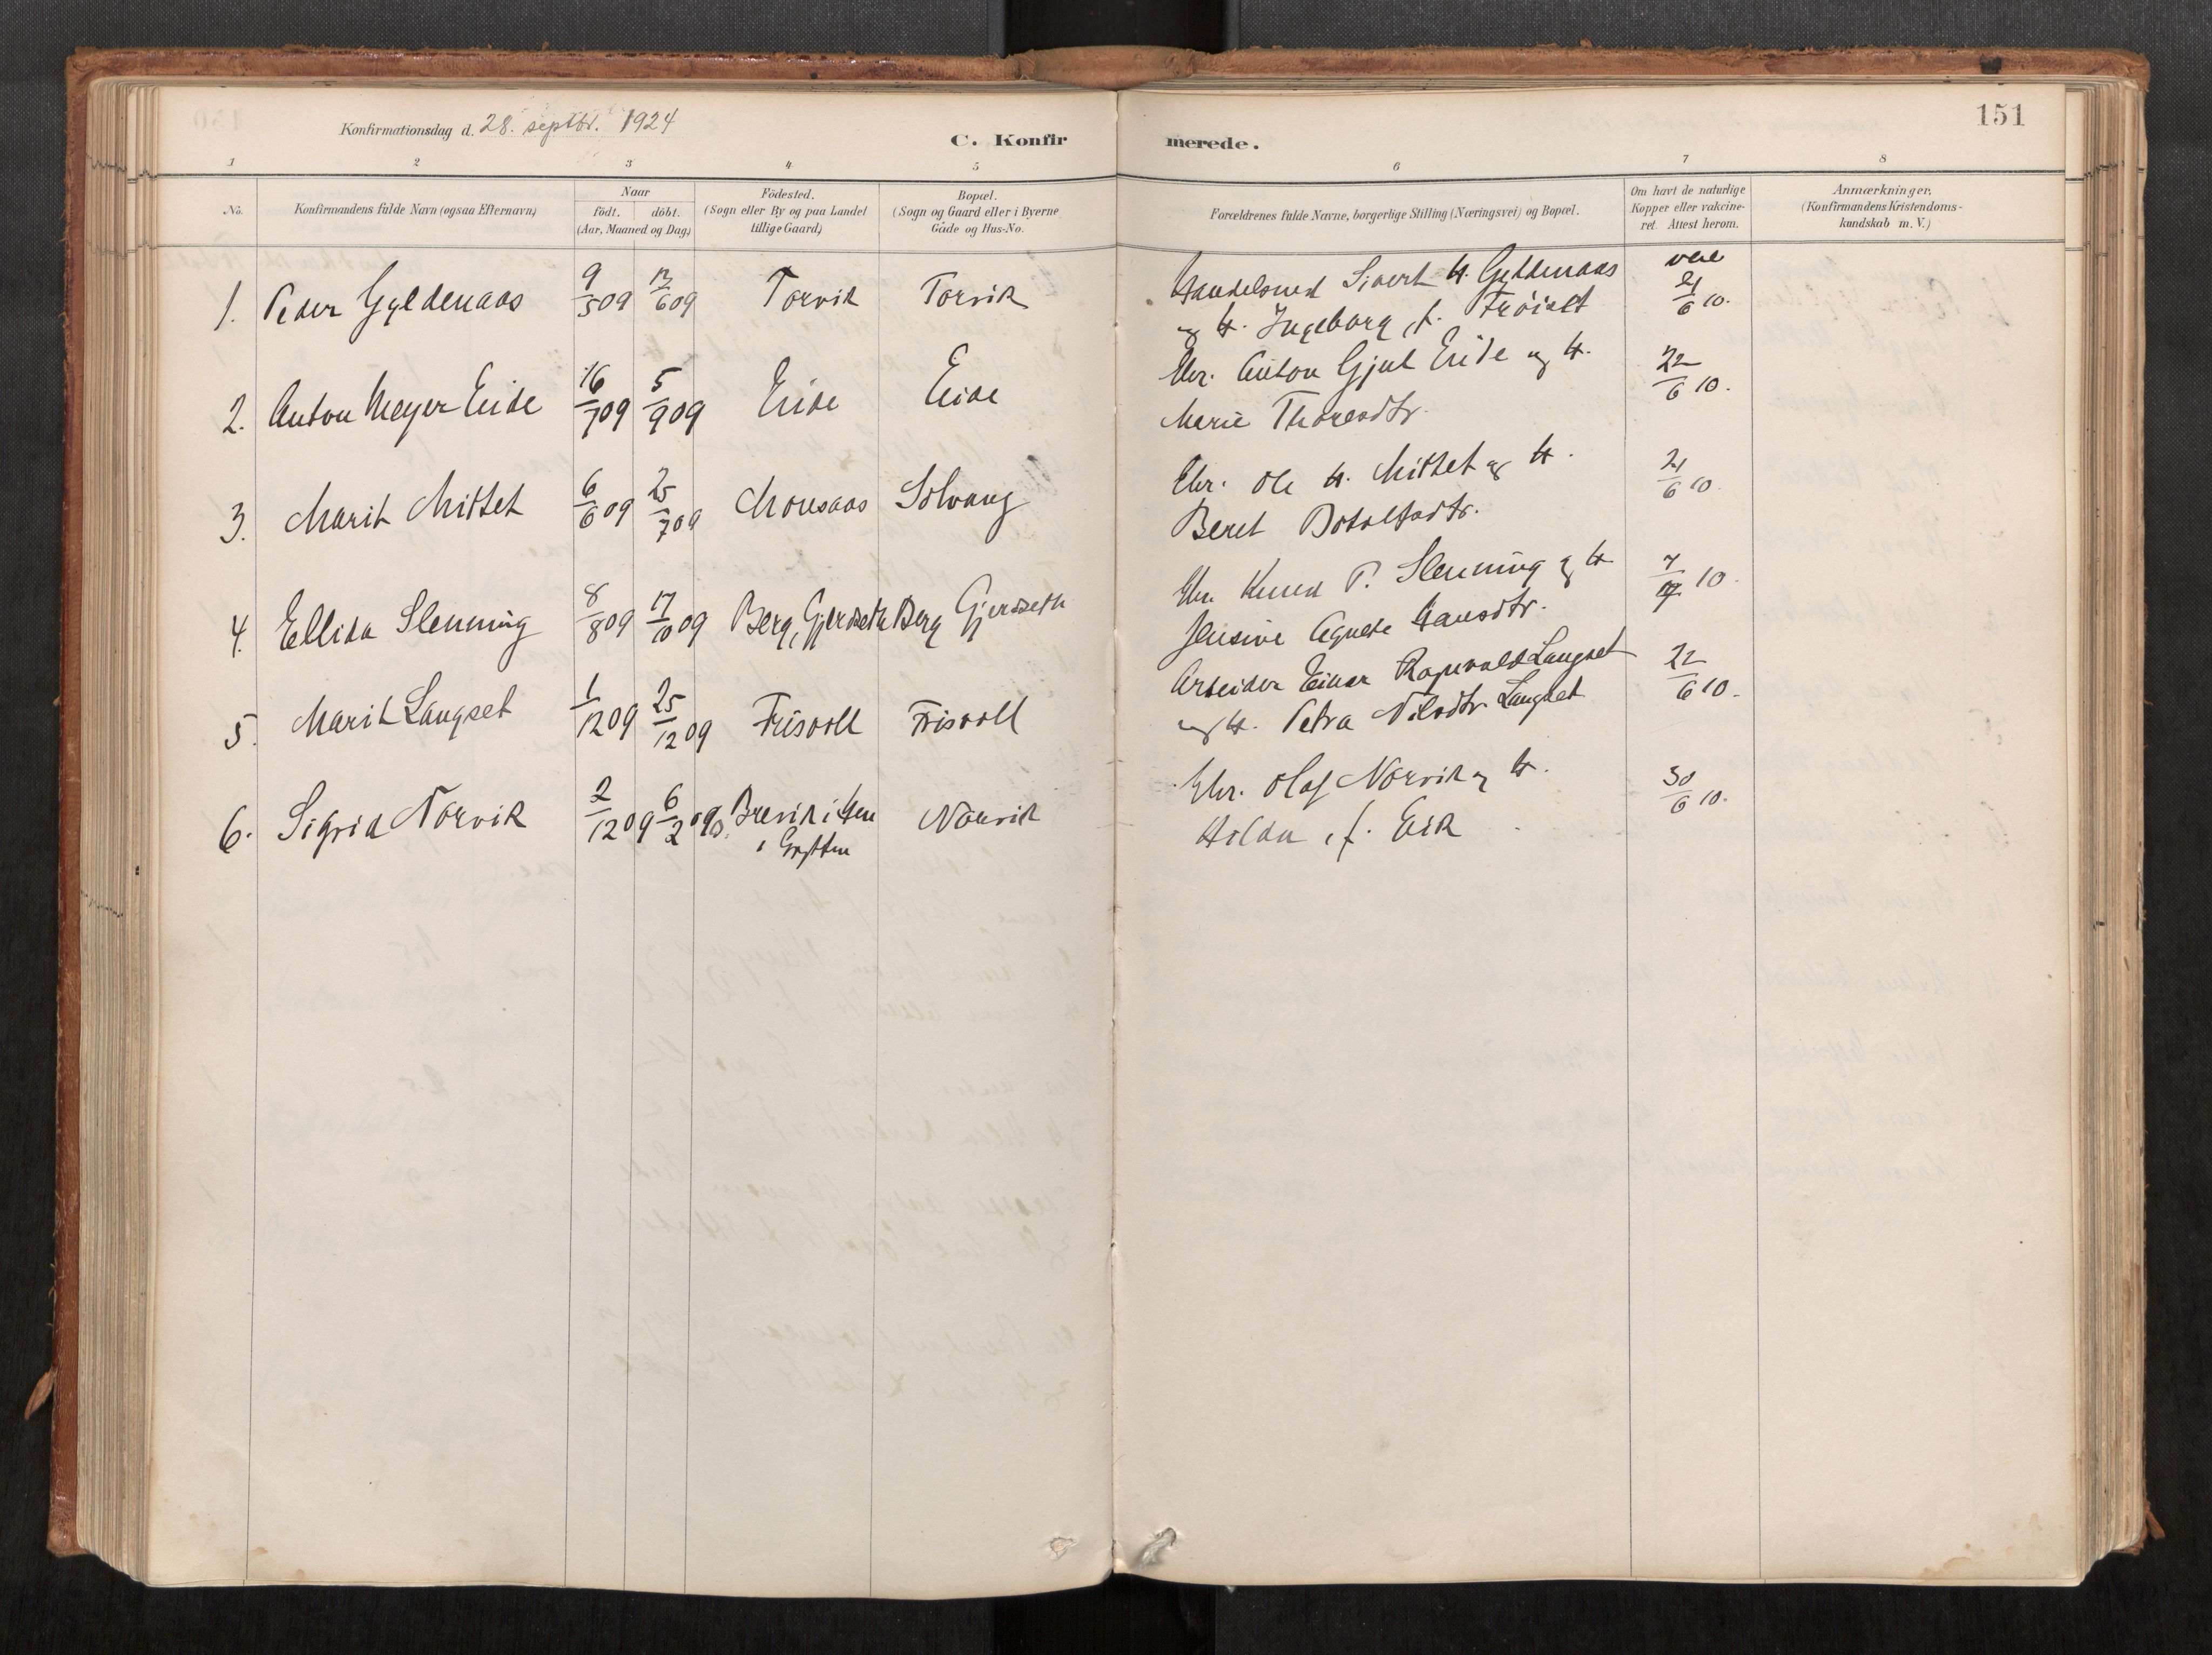 151
Konfirmationsdag d. 28. septbr. 1924
C. Konfirmerede.
1 2 3 4 5 6 7 8
No. Konfirmandens fulde Navn (ogsaa Efternavn)
Naar
födt. döbt.
(Aar, Maaned og Dag)
Födested.
(Sogn eller By og paa Landet
tillige Gaard)
Bopæl.
(Sogn og Gaard eller i Byerne
Gade og Hus-No.
Forældrenes fulde Navne, borgerlige Stilling (Næringsvei) og Bopæl.
Om havt de naturlige
Kopper eller vakcine-
ret. Attest herom.
Anmærkninger.
(Konfirmandens Kristendoms-
kundskab m. V.)
1. Peder Gyldenaas 9/5 09 13/6 09 Torvik Torvik Handelsmed Sivert H. Gyldenaas
og H. Ingeborg, f. Frøiset 21/6 10.
2. Anton Meyer Eide 16/7 09 5/9 09 Eide Eide Gbr. Anton Gjul Eide og H.
Marie Thoresdtr. 22/6 10.
3. Marit Mittet 6/6 09 25/7 09 Monsaas Solvang Gbr. Ole H. Mittet og H.
Beret Botolfsdtr. 21/6 10.
4. Ellida Slenning 8/8 09 17/10 09 Berg, Gjerdseth Berg Gjerdseth Gbr. Knud P. Slenning og H
Jensine Agnete Hansdtr. 10.
5. Marit Langset 1/12 09 25/12 09 Frisvoll Frisvoll Arbeider Einar Ragnvald Langset
og H. Petra Nilsdtr. Langset 22/6 10.
6. Sigrid Norvik 2/12 09 6/2 Brevik i Hen
i Grytten Norvik Gbr. Olaf Norvik og H.
Hilda, f. Eik 30/6 10.